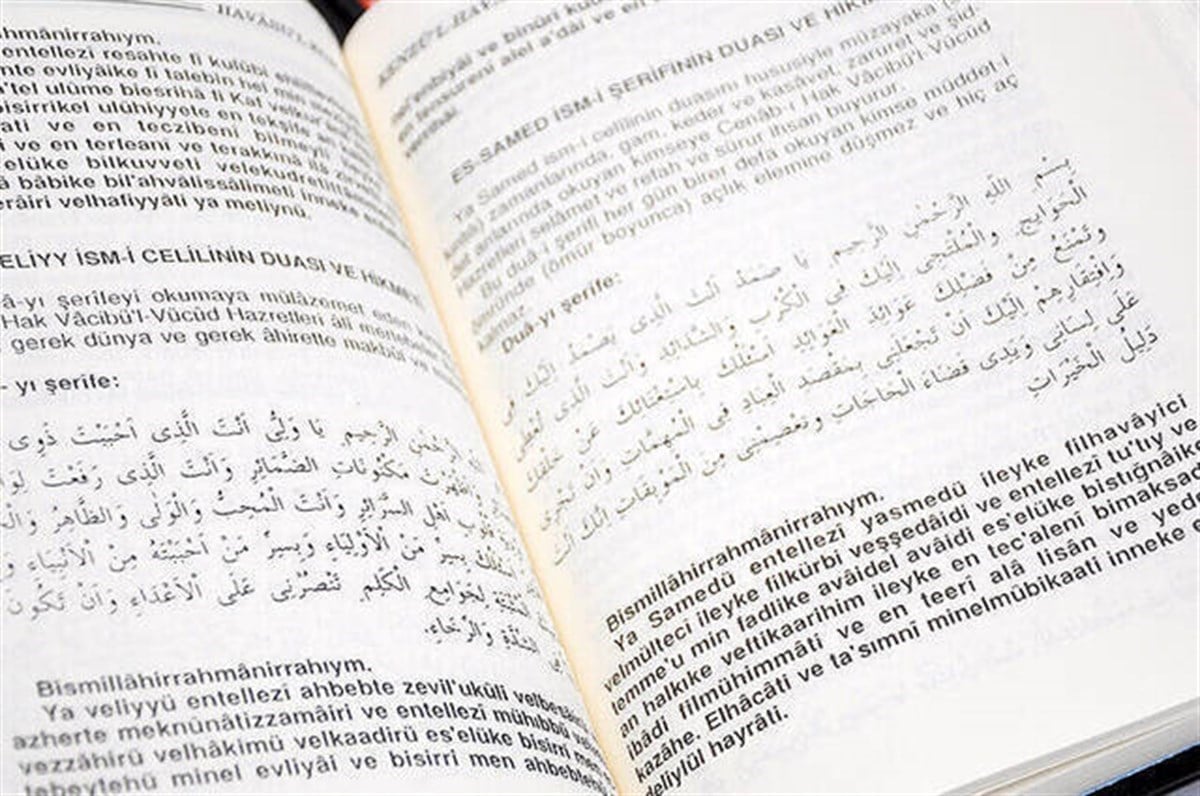 HAVÂSS'L
hmânirrahıym.
entellezî resahte fî kulûbi
nte evliyâike fî talebin
'tel ulûme biesrihâ fi Kaf
bisirrikel ulûhiyyete en tekşife
ati ve en teczibenî
i ve en terleani ve terakkınâ
'elüke bilkuvveti velekudretil
â bâbike bil'ahvâlissâlimeti inneke
erâiri velhafiyyâti ya meliynü.
ELİYY İSM-İ CELİLİNİN DUASI VE HİKMETİ
â-yı şerifeyi okumaya mülâzemet eden
Hak Vâcibü'l-Vücüd Hazretleri âli mertebeler
gerek dünya ve gerek âhirette makbûl
- yı şerife:
الرَّحْمٰنِ الرَّحِيمِ يَا وَلِىُّ اَنْتَ الَّذِى اَحْبَبْتَ ذَوِى
اَظْهَرْتَ مَكْنُونَاتِ الضَّمَائِرِ وَاَنْتَ الَّذِى رَفَعْتَ
قُلُوبِ اَهْلِ السَّرَائِرِ وَاَنْتَ الْمُحِبُّ وَالْوَلِى وَالظَّاهِرُ
اَسْئَلُكَ بِسِرِّ مَنْ اَحْبَبْتَهُ مِنَ الْاَوْلِيَاءِ وَبِسِرِّ مَنْ اَحْبَبْتَهُ مِنَ الْاَنْبِيَاءِ
لِجَوَامِعِ الْكَلِمِ تَنْصُرُنِى عَلَى الْاَعْدَاءِ وَاَنْ تَكُونَ
الشِّدَّةِ وَالرَّخَاءِ.
Bismillâhirrahmânirrahıym.
Ya veliyyü entellezî ahbebte zevil'ukûli
azherte meknûnâtizzamâiri ve entellezî mühıbbü
vezzâhirü velhâkimü velkaadirü es'elüke bisirri men
tebeytehü minel evliyâi ve bisirri men ahbebtehü
KENZÜ'L-HAVÂ
enbiyâi ve binûri
en tensureni alel a'dâi ve en
ES-SAMED İSM-İ ŞERİFİNİN DUASI VE HİKM
Ya Samed ism-i celilinin duasını hususiyle müzayaka
zamanlarında, gam, keder ve kasâvet, zaruret ve şid-
det anlarında okuyan kimseye Cenâb-ı Hak Vâcibü'l-Vücüd
Hazretleri selâmet ve refah ve sürur ihsan buyurur.
Bu duâ-i şerifi her gün birer defa okuyan kimse müddet-i
ömründe (ömür boyunca) açlık elemine düşmez ve hiç aç
kalmaz
Duâ-yı şerife:
بِسْمِ اللّٰهِ الرَّحْمٰنِ الرَّحِيمِ يَا صَمَدُ اَنْتَ الَّذِى يَصْمَدُ اِلَيْكَ فِى
الْحَوَايِجِ وَالْمُلْتَجِى اِلَيْكَ فِى الْكُرَبِ وَالشَّدَائِدِ وَاَنْتَ الَّذِى تُعْطِى
وَتَمْنَعُ مِنْ فَضْلِكَ عَوَائِدَ الْعَوَائِدِ اَسْئَلُكَ بِاسْتِغْنَائِكَ عَنْ خَلْقِكَ
وَافْتِقَارِهِمْ اِلَيْكَ اَنْ تَجْعَلَنِى بِمَقْصَدِ الْعِبَادِ فِى الْمُهِمَّاتِ وَاَنْ تُجْرِىَ
عَلَى لِسَانِى وَيَدِى قَضَاءَ الْحَاجَاتِ وَتَعْصِمَنِى مِنَ الْمُوبِقَاتِ اِنَّكَ اَنْتَ
دَلِيلُ الْخَيْرَاتِ
Bismillâhirrahmânirrahıym.
Ya Samedü entellezî yasmedü ileyke filhavâyici
velmülteci ileyke filkürbi veşşedâidi ve entellezî tu'tıy ve
temme'u min fadlike avâidel avâidi es'elüke bistiğnâike
an halkıke veftikaarihim ileyke en tec'alenî bimaksad
ibâdi filmühimmâti ve en teerî alâ lisân ve yed
kazâhe. Elhâcâti ve ta'sımnî minelmübikaati inneke
deliylül hayrâti.